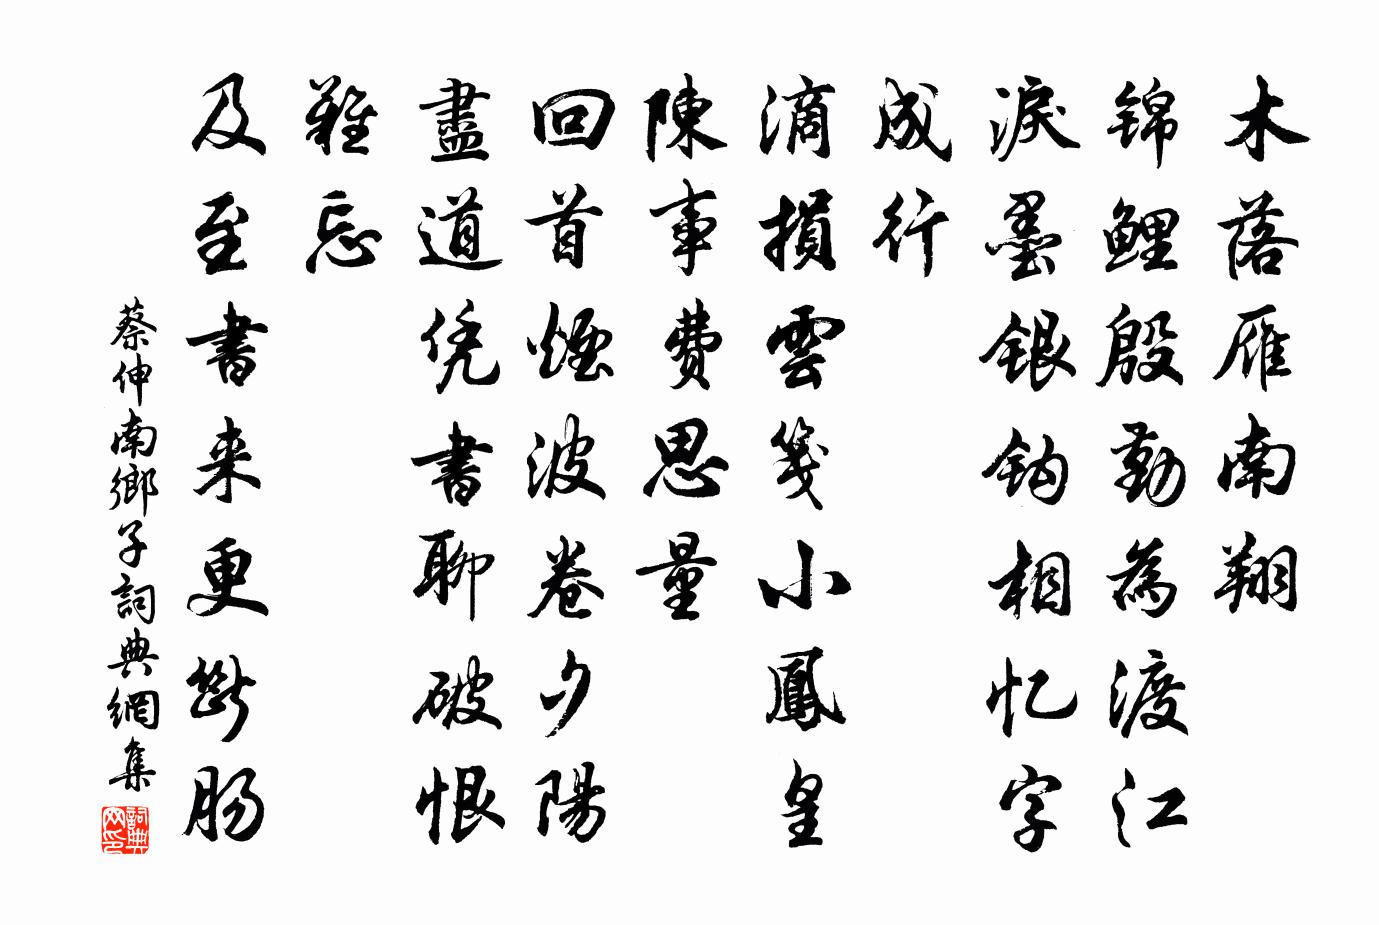 木落雁南翔
锦鲤殷勤為渡江
淚墨銀鈎相忆字
成行
滴損雲箋小鳳皇
陳事費思量
回首煙波卷夕陽
盡道凭書聊破恨
難忘
及至書来更斷肠
蔡伸南鄉子詞典網集
詞典
网印